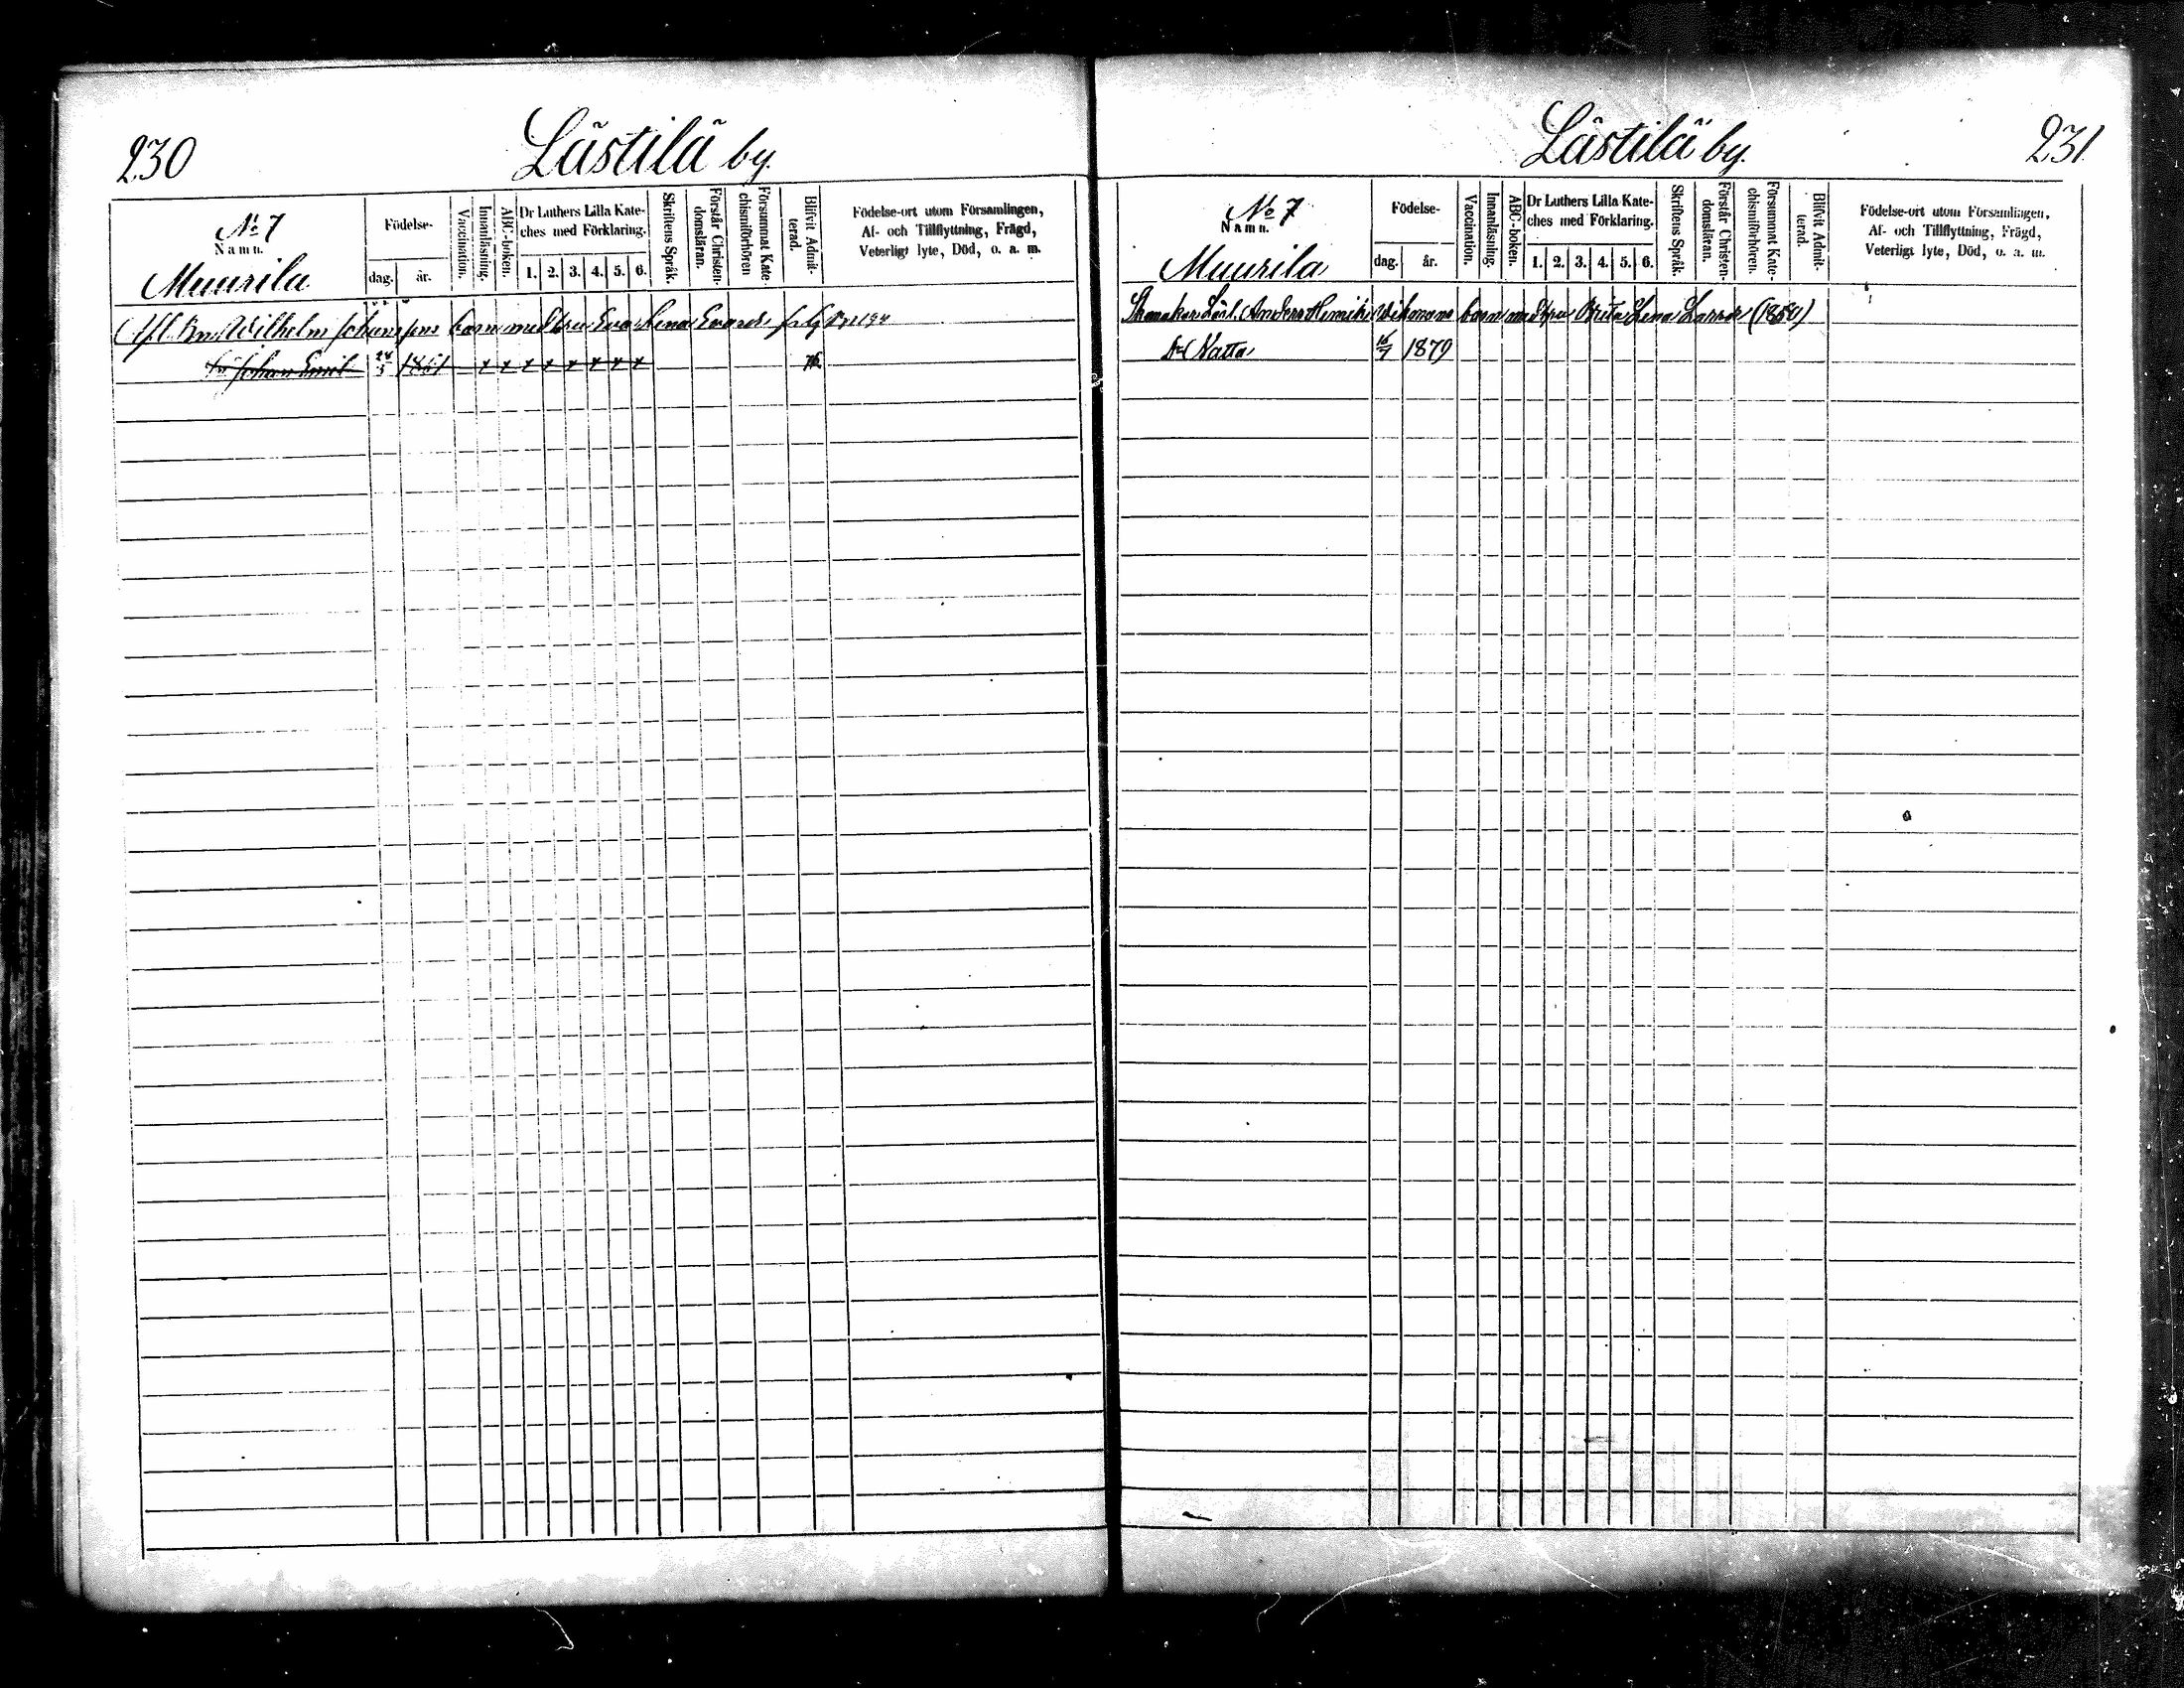 230
Lästilä by.
№ 7
Namn.
Muurila
Födelse-
dag.
år.
Vaccination.
Innanläsning.
ABC-boken.
Dr Luthers Lilla Kate-
ches med Förklaring.
1. 2. 3. 4. 5. 6.
Skriftens Språk.
Förstår Christen-
domsläran.
Försummat Kate-
chismiförhören
Blifvit Admit-
terad.
Födelse-ort utom Församlingen,
Af- och Tillflyttning, Frägd,
Veterligt lyte, Död, o. a. m.
Wilhelm Johanssons barn med hu Eva Lena
Johan Emil 1861 x x x x x x x x 76
Lästilä by.
231
№ 7
Namn.
Muurila
Födelse-
dag.
år.
Vaccination.
Innanläsning.
ABC-boken.
Dr Luthers Lilla Kate-
ches med Förklaring.
1. 2. 3. 4. 5. 6.
Skriftens Språk.
Förstår Christen-
domsläran.
Försummat Kate-
chismiförhören.
Blifvit Admit-
terad.
Födelse-ort utom Församlingen,
Af- och Tillflyttning, Frägd,
Veterligt lyte, Död, o. a. m.
Skomakare Anders Henrik Wikmans barn med Lena
Dr Natta 16/7 1879